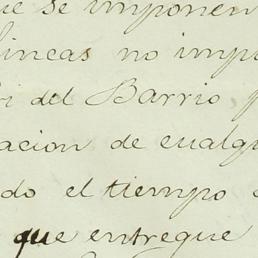 ue se imponen
lineas no impi
ri del Barrio p
acion de cualqu
do el tiempo
que entregue